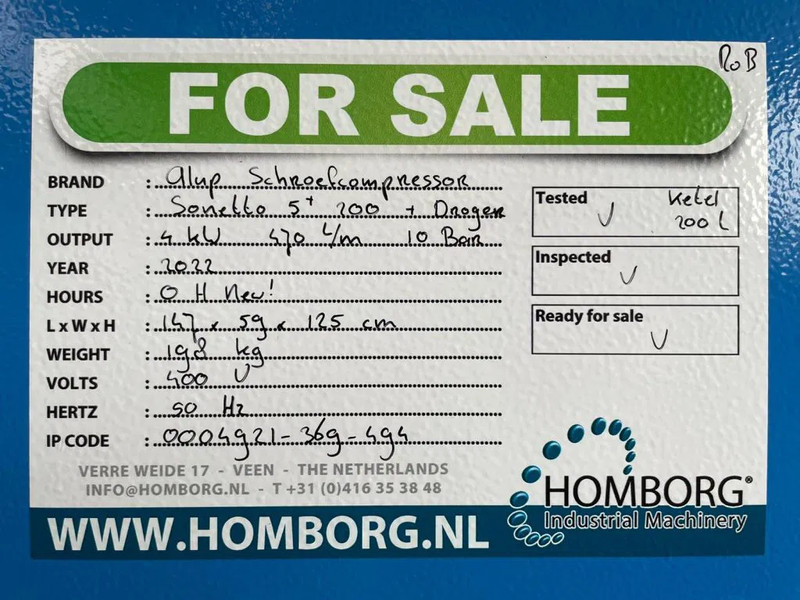 RoB
FOR SALE
BRAND : Alup Schroefcompressor
TYPE : Sonetto 5+ 200 + Droger
OUTPUT : 4 kW 470 L/m 10 Bar
YEAR : 2022
HOURS : 0 H New!
L x W x H : 147 x 59 x 125 cm
WEIGHT : 198 kg
VOLTS : 400 V
HERTZ : 50 Hz
IP CODE : 0004921-369-494
Tested V Ketel 200 L
Inspected V
Ready for sale V
VERRE WEIDE 17 - VEEN - THE NETHERLANDS
INFO@HOMBORG.NL - T +31 (0)416 35 38 48
WWW.HOMBORG.NL
HOMBORG®
Industrial Machinery